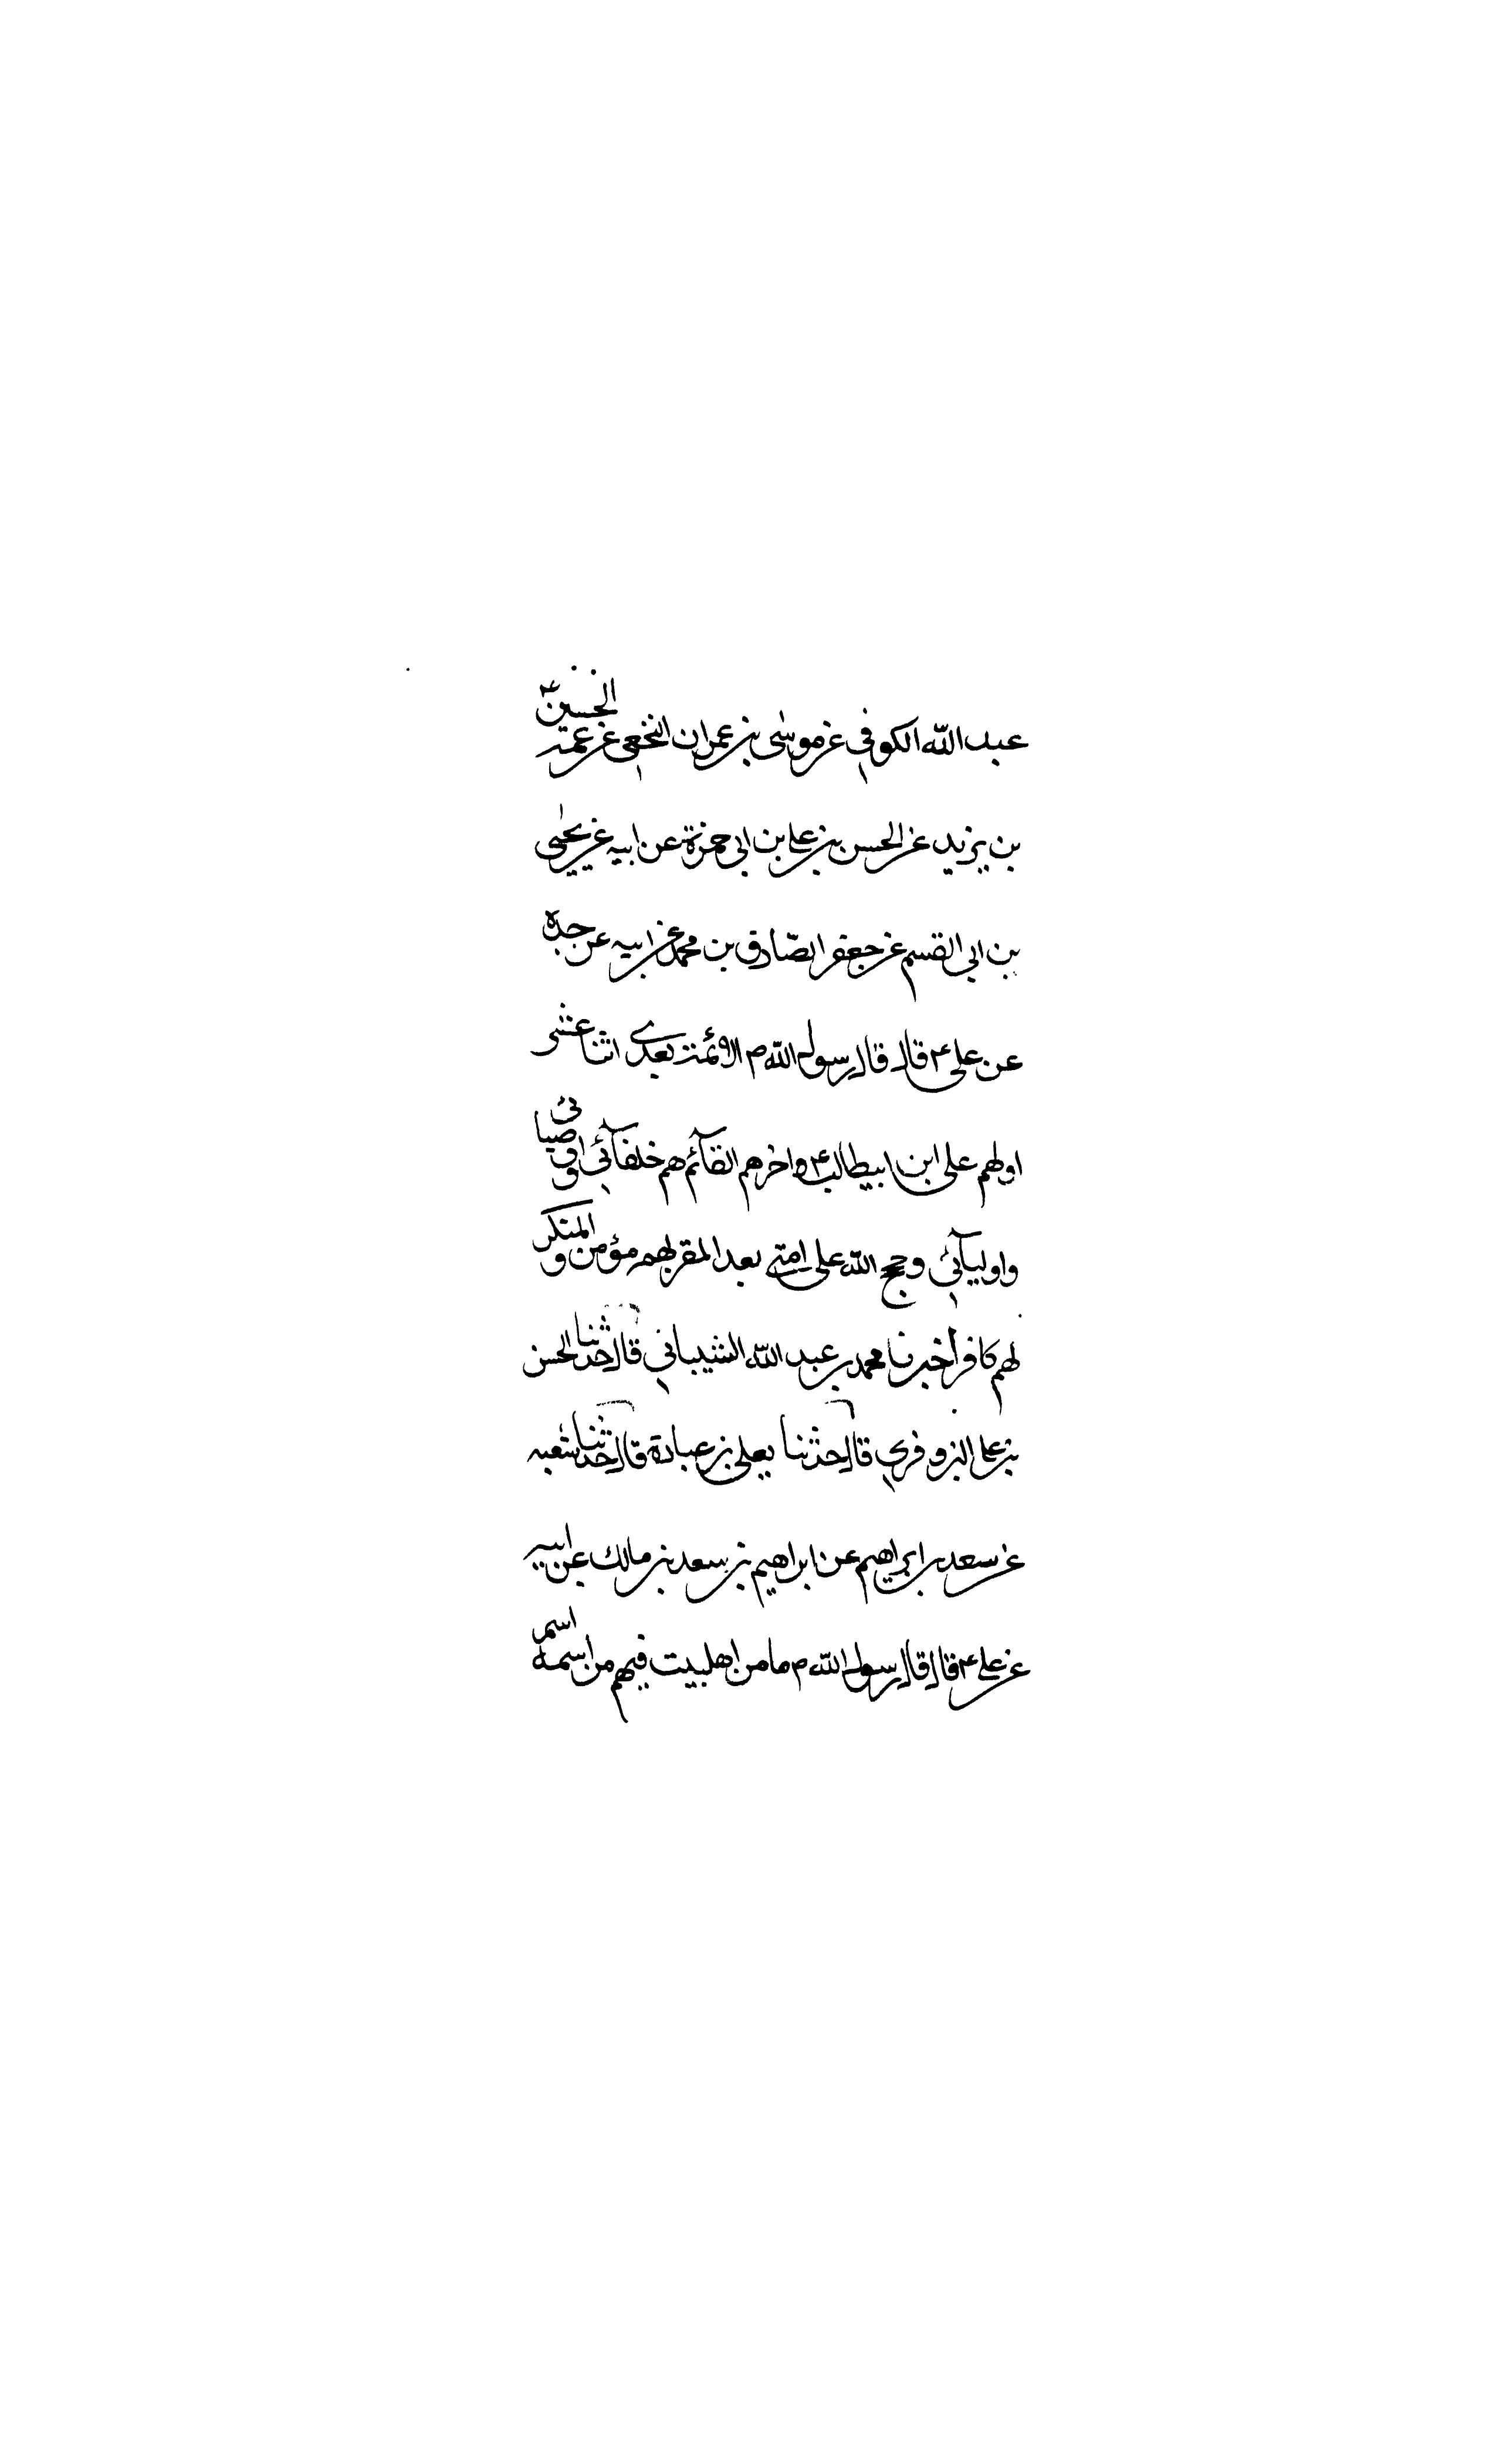 عبد الله الكوفي عن موسى بن عمران النخعي عن عمه الحسين
بن يزيد عن الحسن بن علي بن ابي حمزة عن ابيه عن يحيى
بن ابي القسم عن جعفر الصّادق بن محمد عن ابيه عن جده
عن علي ع قال قال رسول الله ص الائمة بعدي اثنا عشر
اولهم علي ابن ابيطالب ع واخرهم القآئم هم خلفآئي واوصيائي
واوليآئي وحجج الله على امتي بعد المقر بهم مؤمن والمنكر
لهم كافر اخبرنا محمد بن عبد الله الشيباني قال حدثنا الحسن
بن علي البزوفري قال حدثنا يعلي بن عبادة قال حدثنا شعبه
عن سعد بن ابراهيم عن ابراهيم بن سعد بن مالك عن ابيه
عن علي ع قال قال رسول الله ص ما من اهلبيت فيهم من اسمه اسم